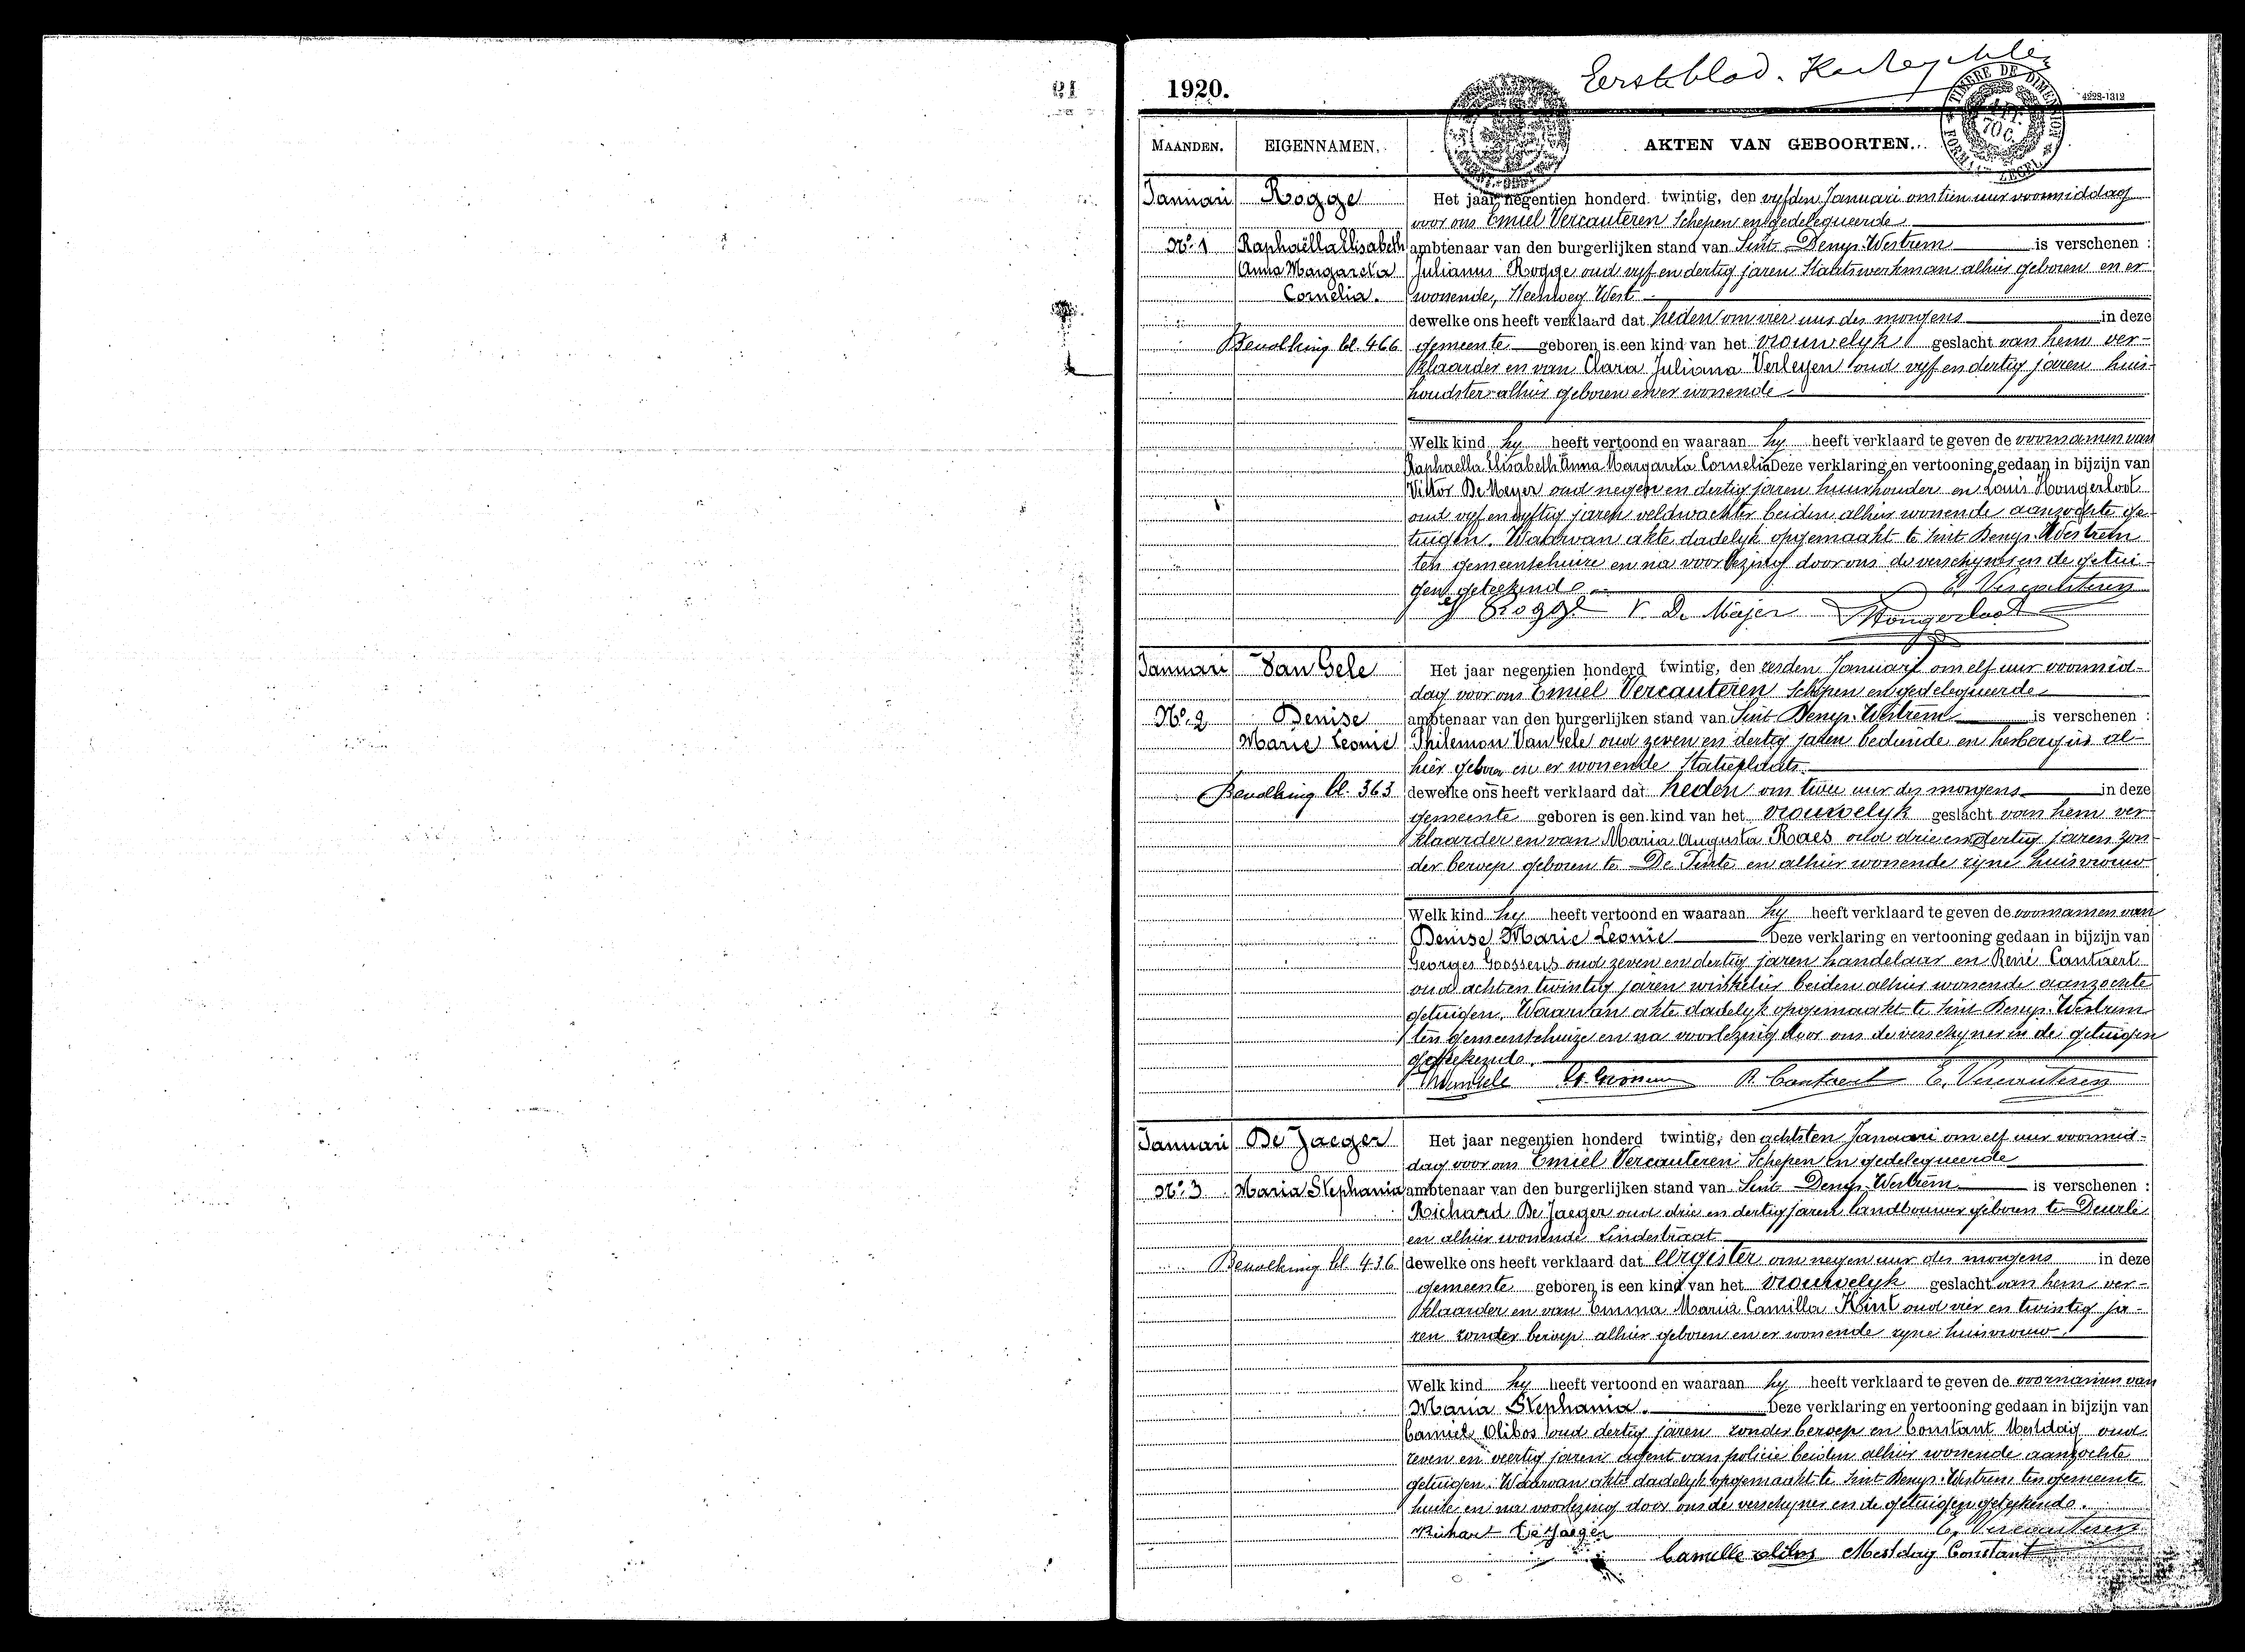 Eersteblad.
1920.
4228-1312
TIMBRE DE DIMENSION
FORMAATZEGEL
1 FR.
70 C.
MAANDEN.
EIGENNAMEN.
AKTEN VAN GEBOORTEN.
Januari
Rogge
Het jaar negentien honderd twintig, den vyfden Januari om tien uur voormiddag
voor ons Emiel Vercauteren Schepen en gedelegueerde
No. 1
Raphaëlla Elisabeth
ambtenaar van den burgerlijken stand van Sint Denys-Westrem is verschenen :
Anna Margareta
Julianus Rogge oud vyf en dertig jaren Staatswerkman alhier geboren en er
Cornelia.
wonende, Heerweg West
dewelke ons heeft verklaard dat heden om vier uur des morgens in deze
Bevolking bl. 466
gemeente geboren is een kind van het vrouwelyk geslacht van hem ver-
klaarder en van Clara Juliana Verleyen oud vyf en dertig jaren huis-
houdster alhier geboren en er wonende
Welk kind hy heeft vertoond en waaraan hy heeft verklaard te geven de voornamen van
Raphaella Elisabeth Anna Margareta Cornelia Deze verklaring en vertooning gedaan in bijzijn van
Viktor De Meyer oud negen en dertig jaren huurhouder en Louis Hongerloot
oud vyf en vyftig jaren veldwachter beiden alhier wonende aanzochte ge-
tuigen. Waarvan akte dadelyk opgemaakt te Sint Denys-Westrem
ten gemeentehuize en na voorlezing door ons de verschyner en de getui-
gen geteekend
E. Vercauteren
Rogge V. De Meyer Hongerloot
Januari
Van Gele
Het jaar negentien honderd twintig, den zesden Januari om elf uur voormid-
dag voor ons Emiel Vercauteren Schepen en gedelegueerde
No. 2
Denise
ambtenaar van den burgerlijken stand van Sint Denys-Westrem is verschenen :
Marie Leonie
Philemon Van Gele oud zeven en dertig jaren bediende en herbergier al-
hier geboren en er wonende Statieplaats
Bevolking bl. 363
dewelke ons heeft verklaard dat heden om twee uur des morgens in deze
gemeente geboren is een kind van het vrouwelyk geslacht van hem ver-
klaarder en van Maria Augusta Raes oud drie en dertig jaren zon-
der beroep geboren te De Pinte en alhier wonende zyne huisvrouw
Welk kind hy heeft vertoond en waaraan hy heeft verklaard te geven de voornamen van
Denise Marie Leonie Deze verklaring en vertooning gedaan in bijzijn van
Georges Goossens oud zeven en dertig jaren handelaar en René Cantaert
oud acht en twintig jaren winkelier beiden alhier wonende aanzochte
getuigen. Waarvan akte dadelyk opgemaakt te Sint Denys-Westrem
ten gemeentehuize en na voorlezing door ons de verschyner en de getuigen
geteekend.
VanGele G. Goossens R. Cantaert E. Vercauteren
Januari
De Jaeger
Het jaar negentien honderd twintig, den achtsten Januari om elf uur voormid-
dag voor ons Emiel Vercauteren Schepen en gedelegueerde
No. 3
Maria Stephania
ambtenaar van den burgerlijken stand van Sint Denys-Westrem is verschenen :
Richard De Jaeger oud drie en dertig jaren landbouwer geboren te Deurle
en alhier wonende Lindestraat
Bevolking bl. 436
dewelke ons heeft verklaard dat eergister om negen uur des morgens in deze
gemeente geboren is een kind van het vrouwelyk geslacht van hem ver-
klaarder en van Emma Maria Camilla Kint oud vier en twintig ja-
ren zonder beroep alhier geboren en er wonende zyne huisvrouw.
Welk kind hy heeft vertoond en waaraan hy heeft verklaard te geven de voornamen van
Maria Stephania. Deze verklaring en vertooning gedaan in bijzijn van
Camiel Olibos oud dertig jaren zonder beroep en Constant Mestdag oud
zeven en veertig jaren agent van policie beiden alhier wonende aanzochte
getuigen. Waarvan akte dadelyk opgemaakt te Sint Denys-Westrem ten gemeente
huize en na voorlezing door ons de verschyner en de getuigen geteekend.
Richart De Jaeger E. Vercauteren
Camille Olibos Mestdag Constant